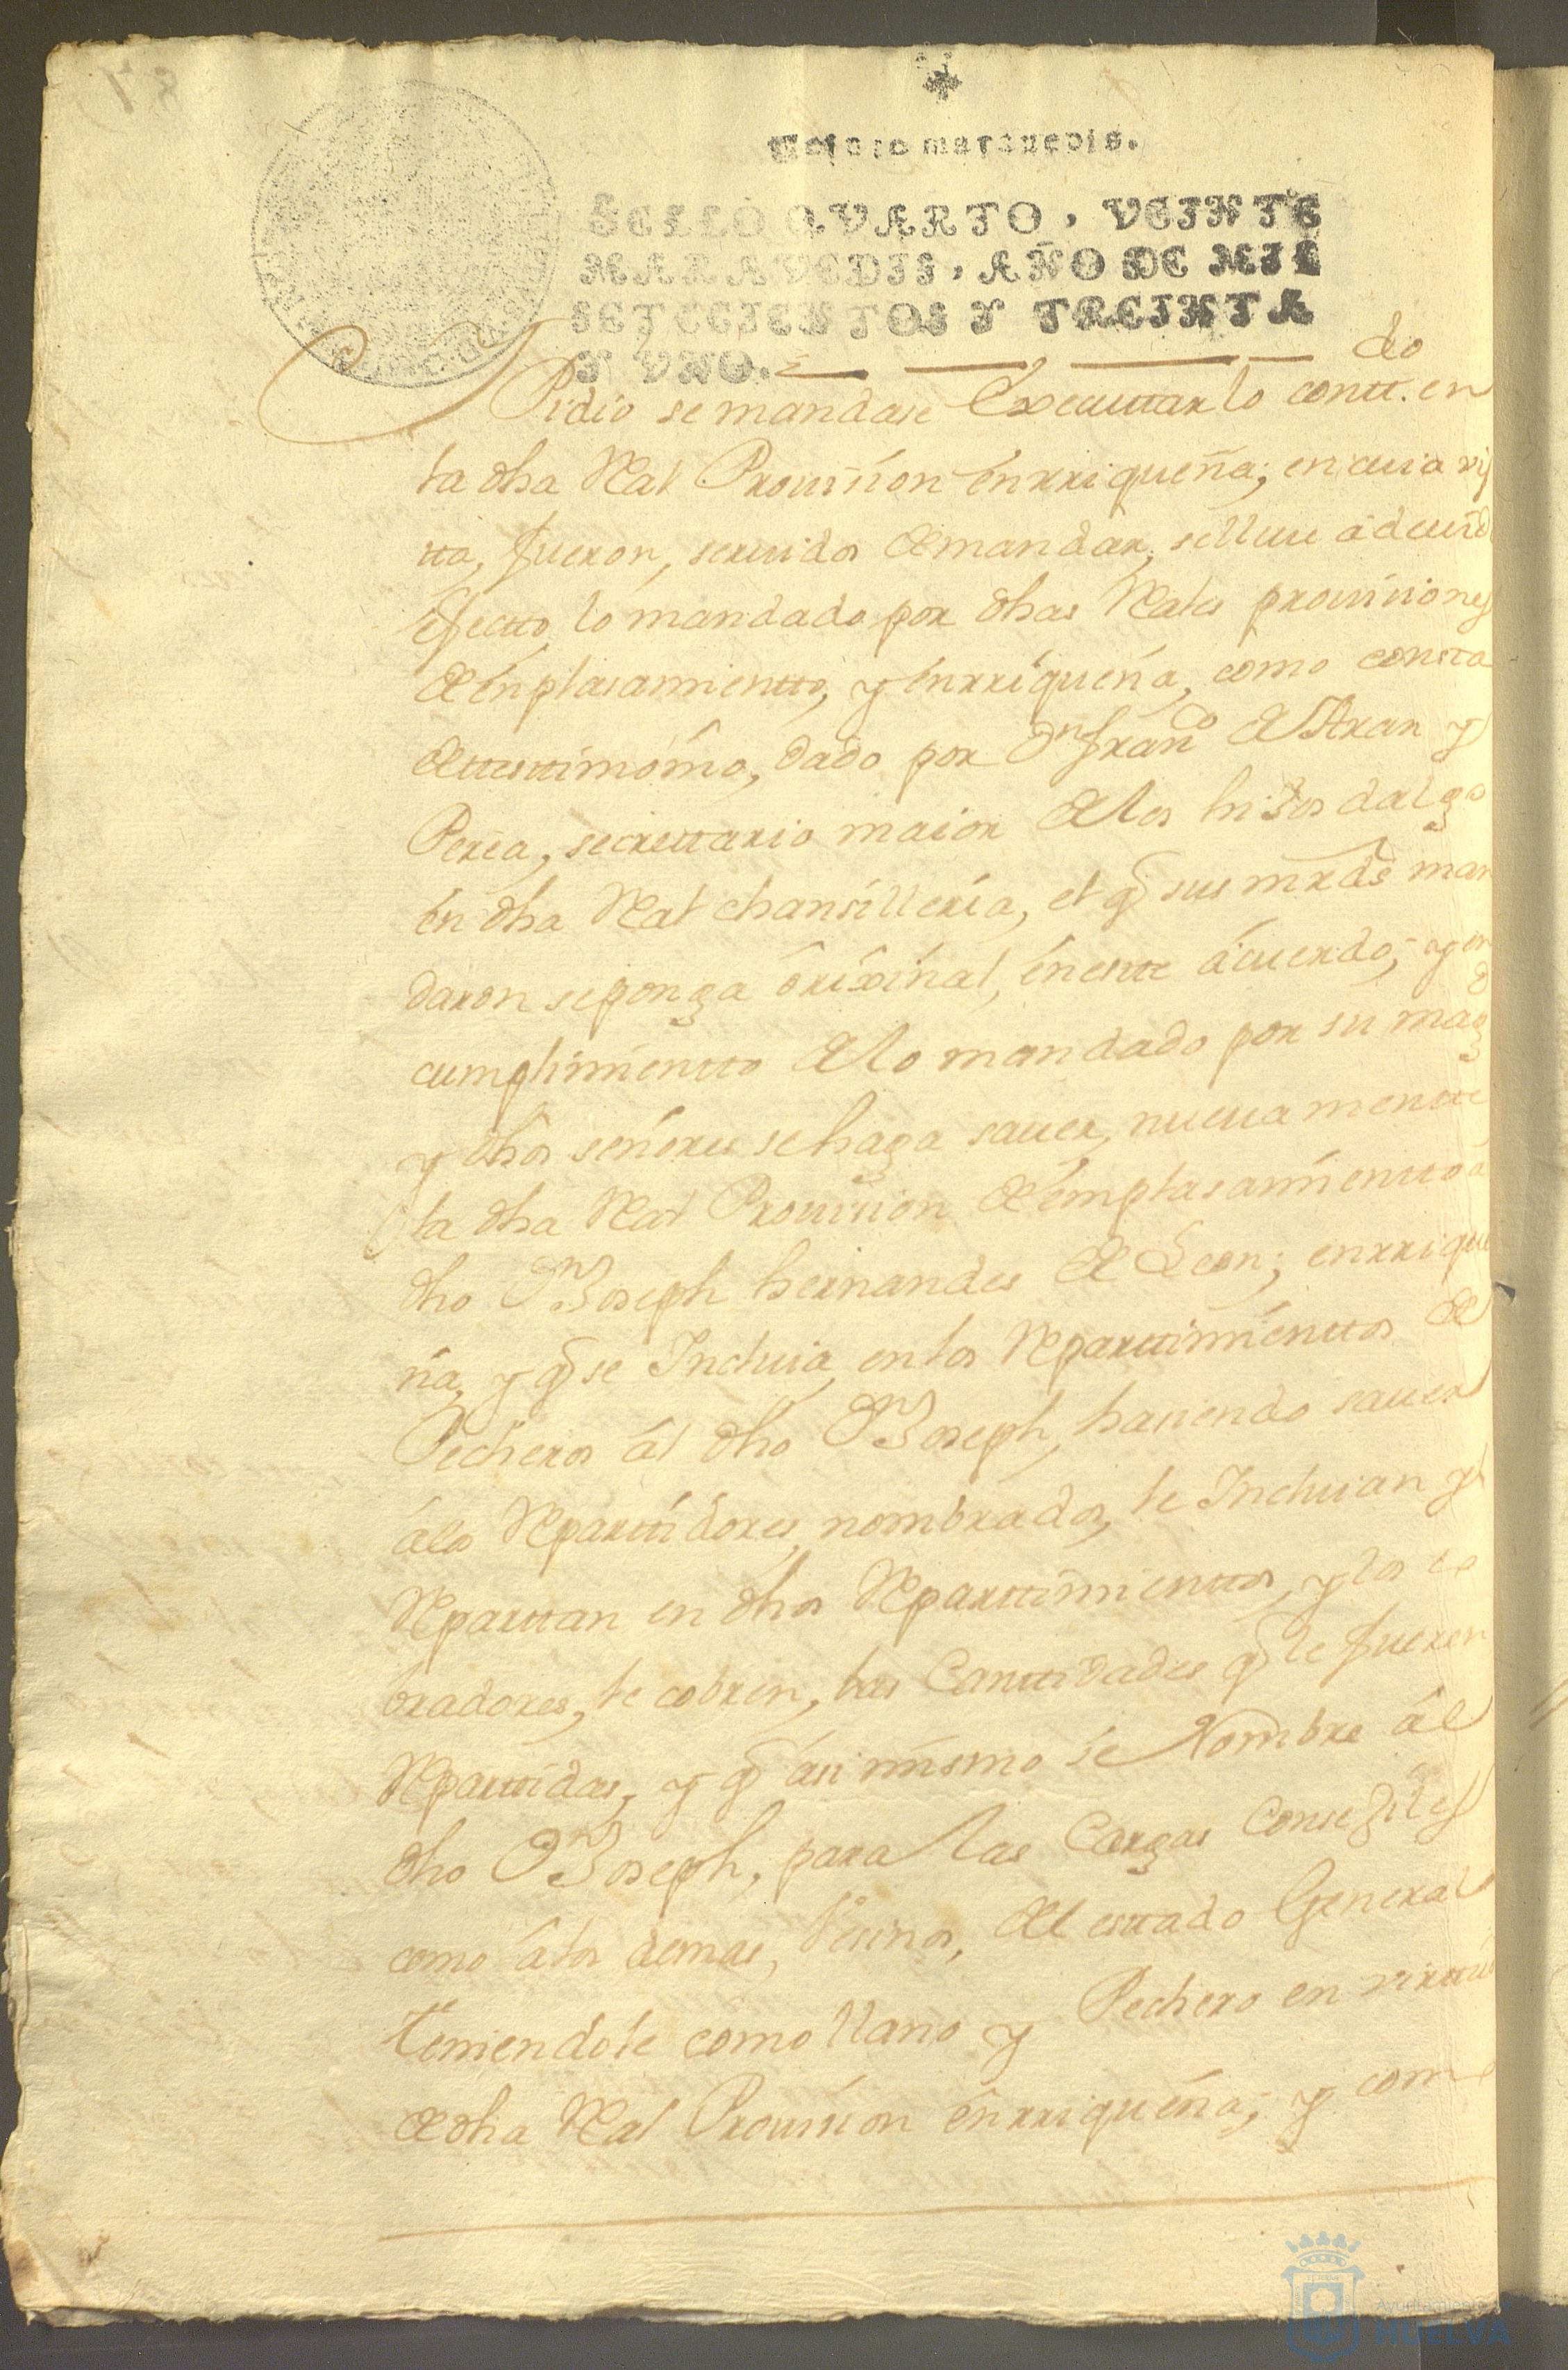 Veinte maravedis.
SELLO QVARTO, VEINTE
MARAVEDIS, AÑO DE MIL
SETECIENTOS Y TREINTA
Y VNO.
Pidio se mandase Executtar lo contt.do en
la dha Real Prouision enrriqueña; en cuia vis
tta, fueron, seruidos de mandar, se lleue a deuido
efectto lo mandado por dhas Reales prouisiones
de énplasamientto, y énrriqueña, como consta
de ttesttimonio, dado por Dn franco de Aran y
Perea, secrettario maior de los hijos dalgo
én dha Real chansilleria, el q sus mrds man
daron se ponga órixinal, én estte ácuerdo; y en
cumplimientto de lo mandado por su magd
y dhos señores se haga sauer, nueuamentte
la dha Real Prouision de émplasamientto a
dho Dn Joseph hernandes de Leon; enrrique
ña, y q se Incluia en los Reparttimienttos de
Pecheros ál dho Dn Joseph, hasiendo sauer
álos Reparttidores nombrados, le Incluian y
Reparttan en dhos Reparttimienttos, y los co
bradores, le cobren, las Canttidades q le fueren
Reparttidas, y q ásimismo se Nombre ál
dho Dn Joseph, para las Cargas Consejiles
como álos demas, Vesinos, del esttado General
teniendole como llano y Pechero en virttud
de dha Real Prouision énrriqueña; y como
Ayuntamiento
HUELVA